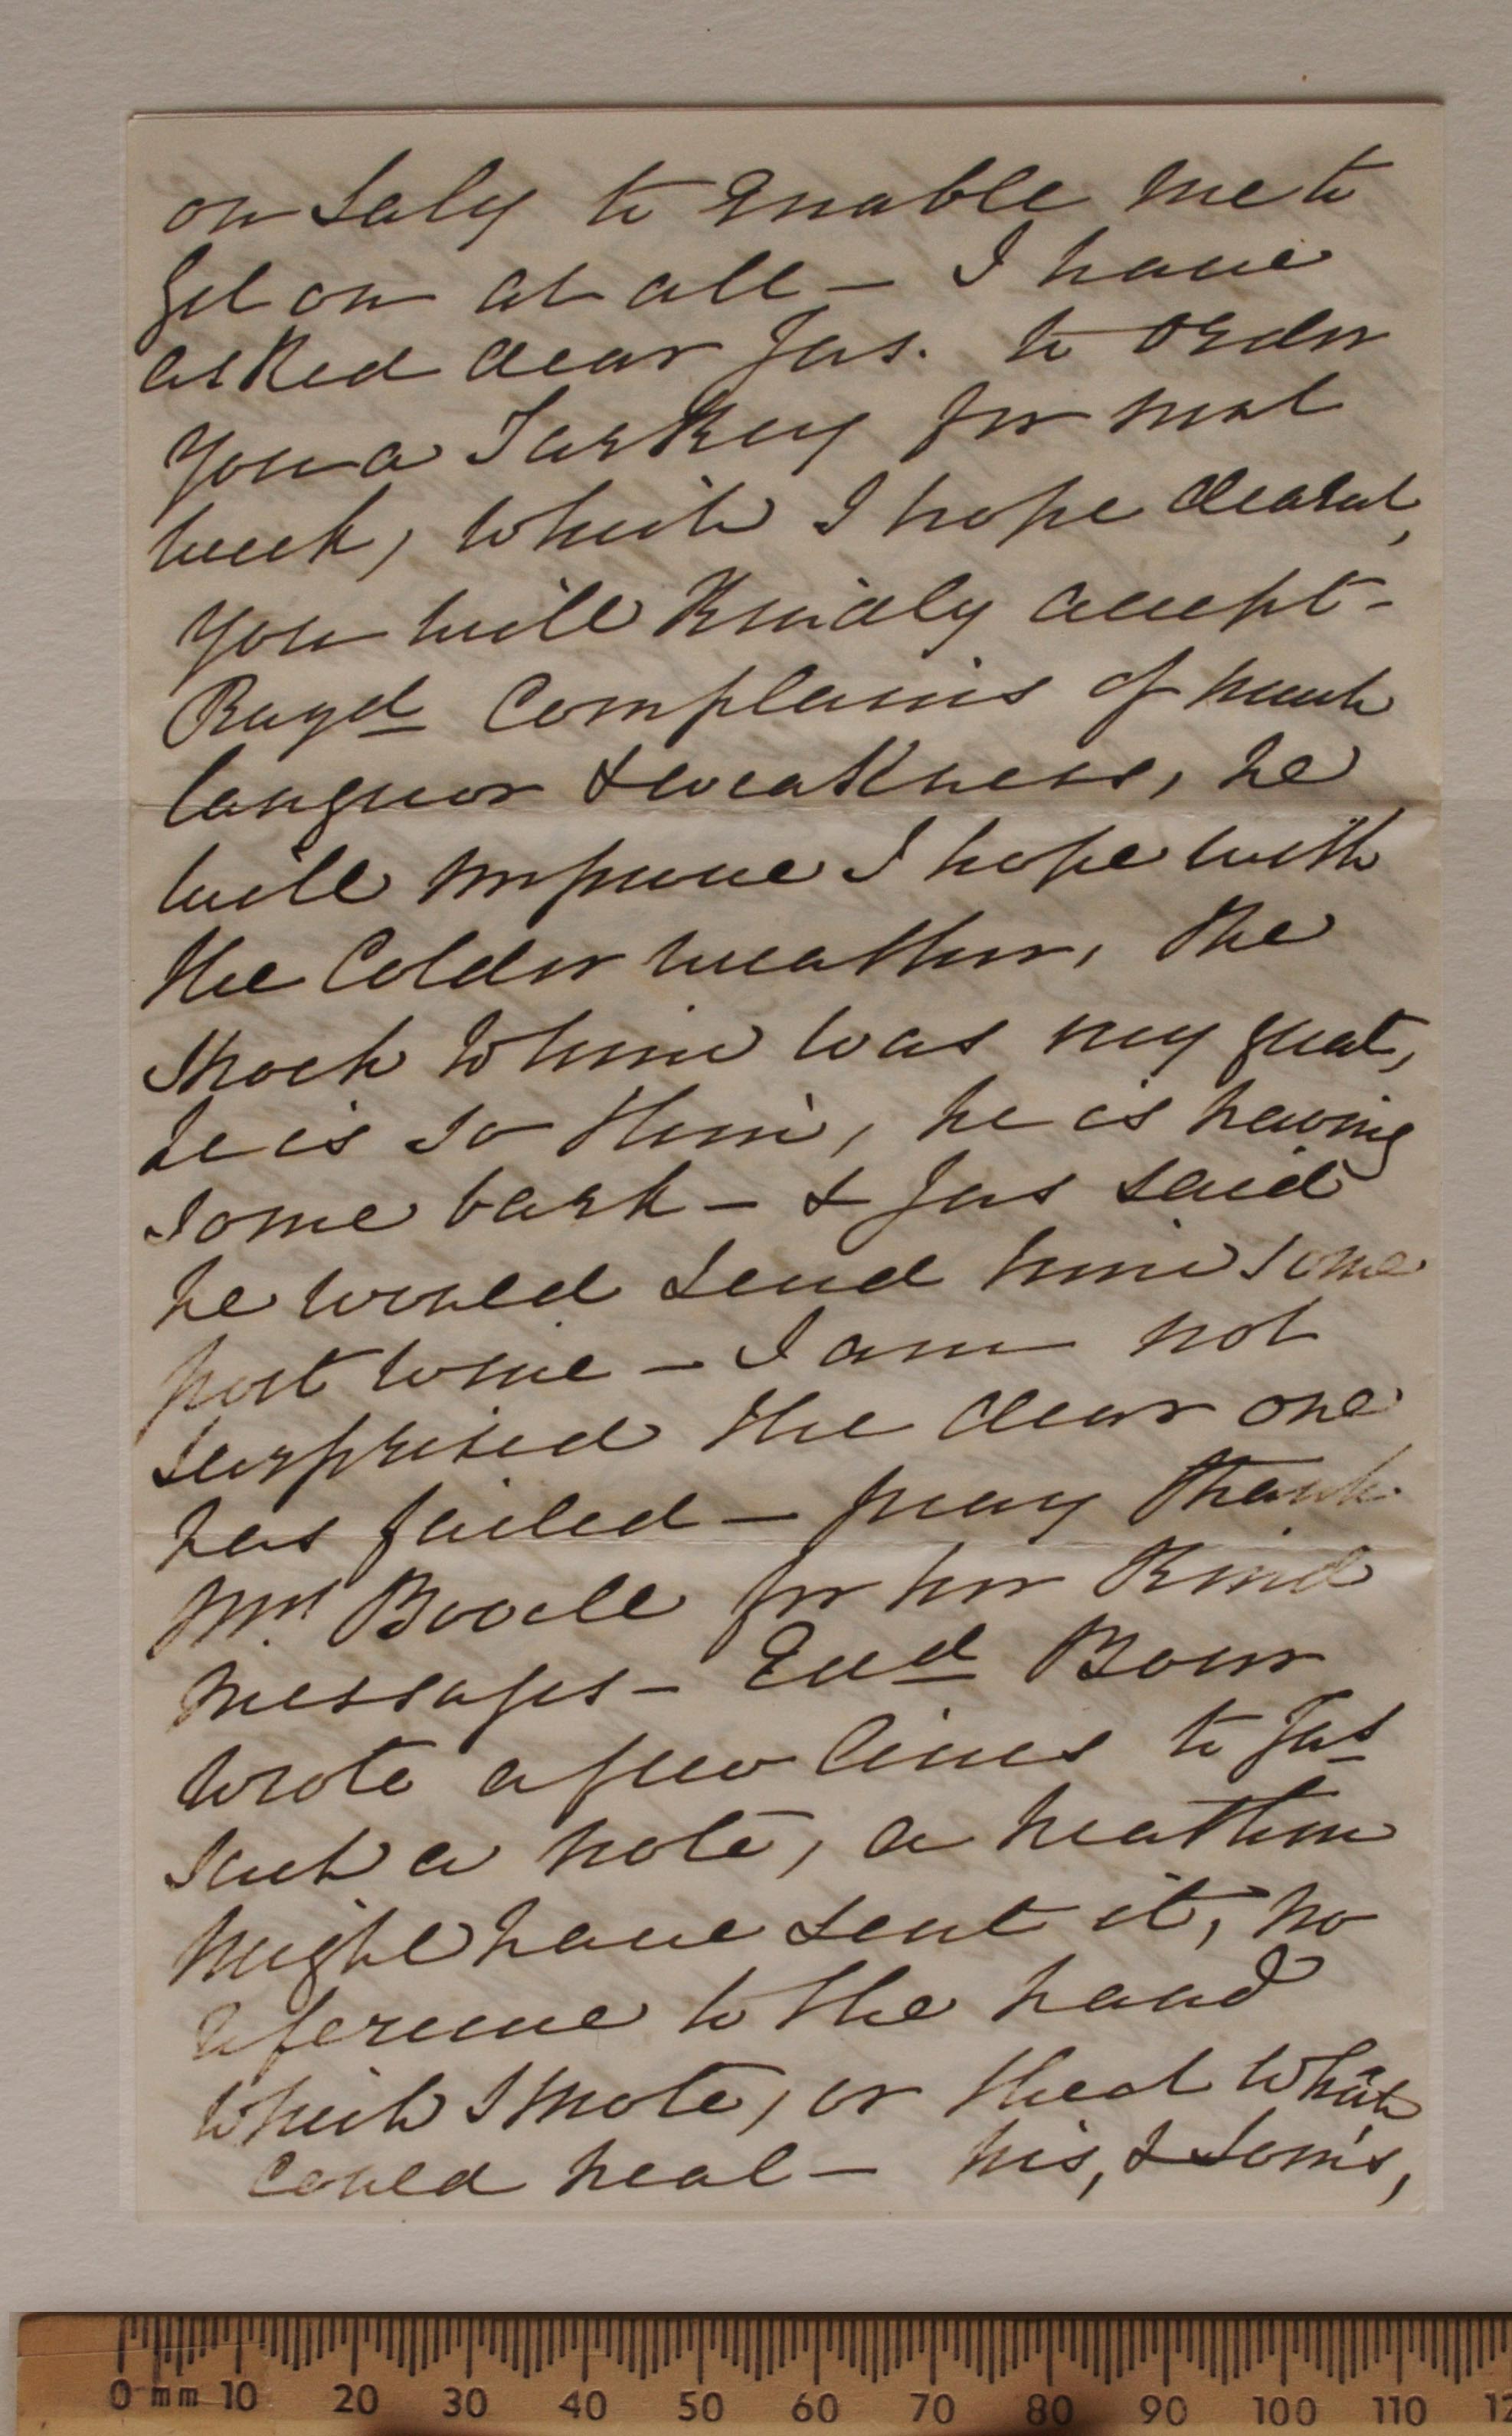 on Saly to Enable me to
get on at all — I have
asked dear Jas. to order
you a Turkey for next
week, which I hope dearest,
you will Kindly accept -
Rayd Complains of much
languor & weakness, he
will improve I hope with
the Colder weather, the
shock to him was very great,
he is so thin, he is having
some bark — & Jas said
he would send him some
port wine — I am not
surprised the dear one
has failed — pray thank
Mrs Boodle for her Kind
messages — Edd Bour
wrote a few lines to Jas
such a note, a heathen
might have sent it, no
reference to the hand
which smote, or that which
could heal — his, & Tom's,
0 mm 10 20 30 40 50 60 70 80 90 100 110